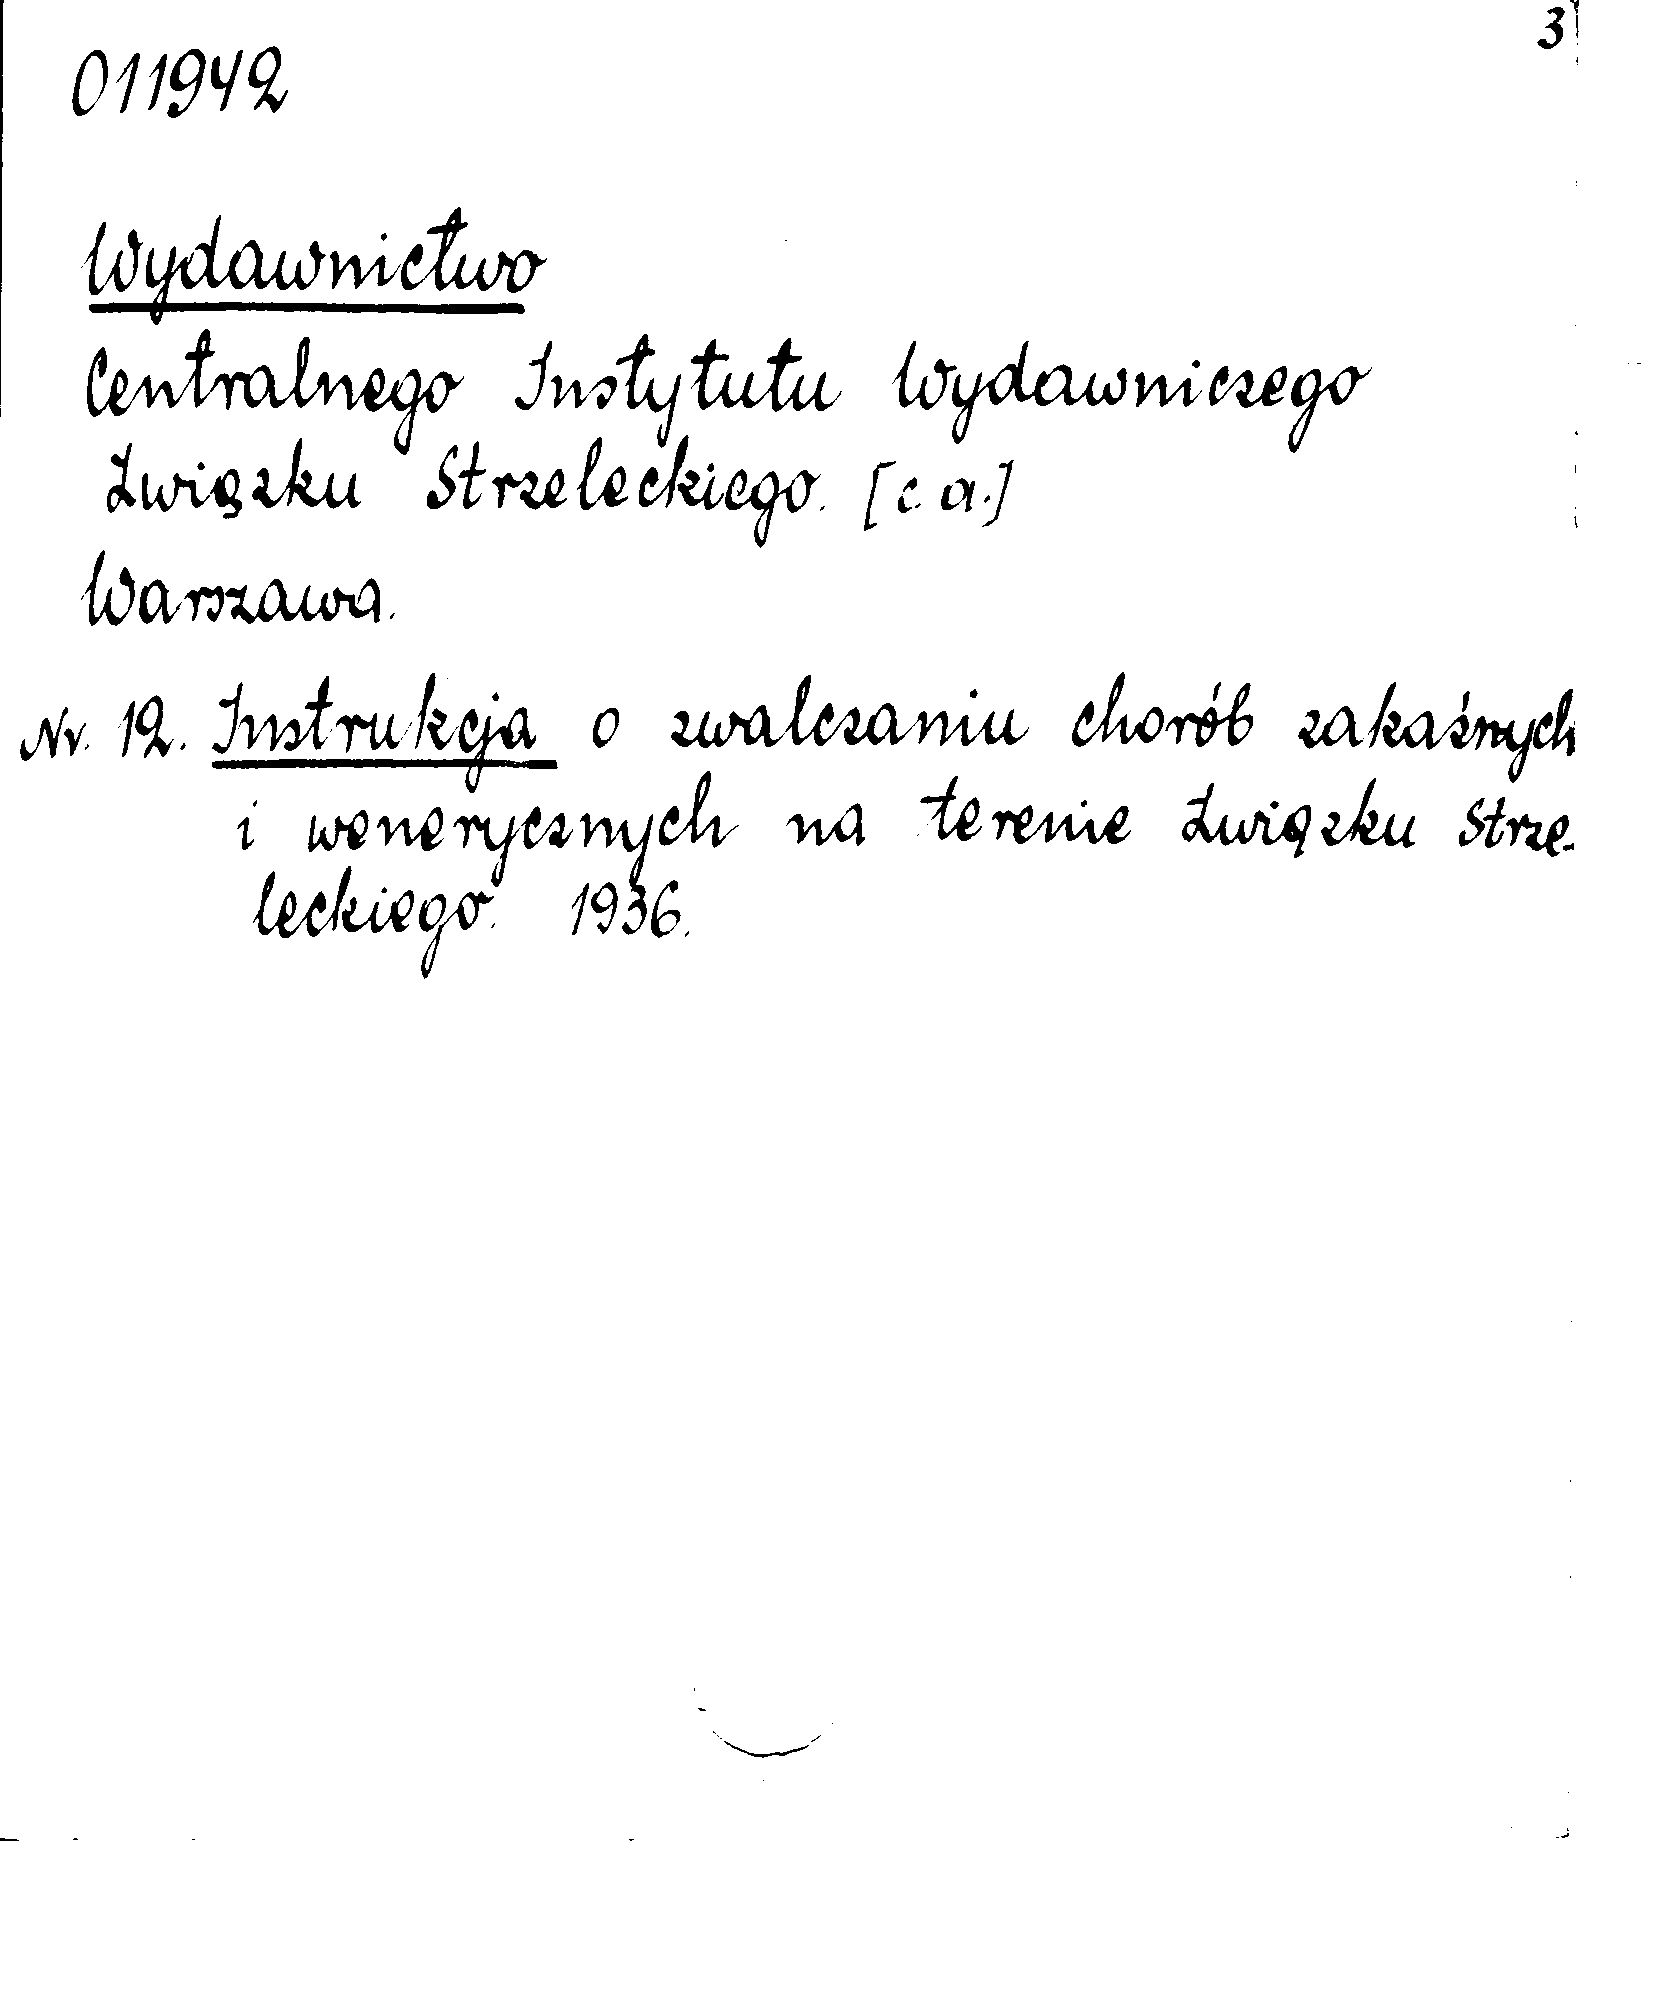 3
011942
Wydawnictwo
Centralnego Instytutu Wydawniczego
Związku Strzeleckiego. [c.a.]
Warszawa.
Nr. 12. Instrukcja o zwalczaniu chorób zakaźnych
i wenerycznych na terenie Związku Strze-
leckiego. 1936.